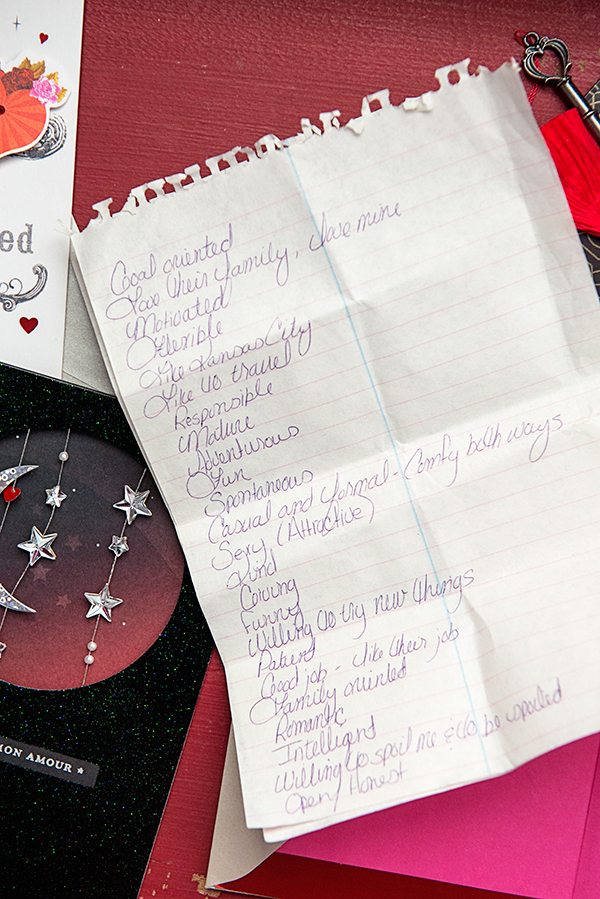 ed
Goal oriented
Love their family, love mine
Motivated
Flexible
Like Kansas City
Like to travel
Responsible
Mature
Adventurous
Fun
Spontaneous
Casual and formal - Comfy both ways
Sexy (Attractive)
Kind
Giving
Funny
Willing to try new things
Patient
Good job - like their job
Family oriented
Romantic
Intelligent
Willing to spoil me & to be spoiled
Open/Honest
MON AMOUR